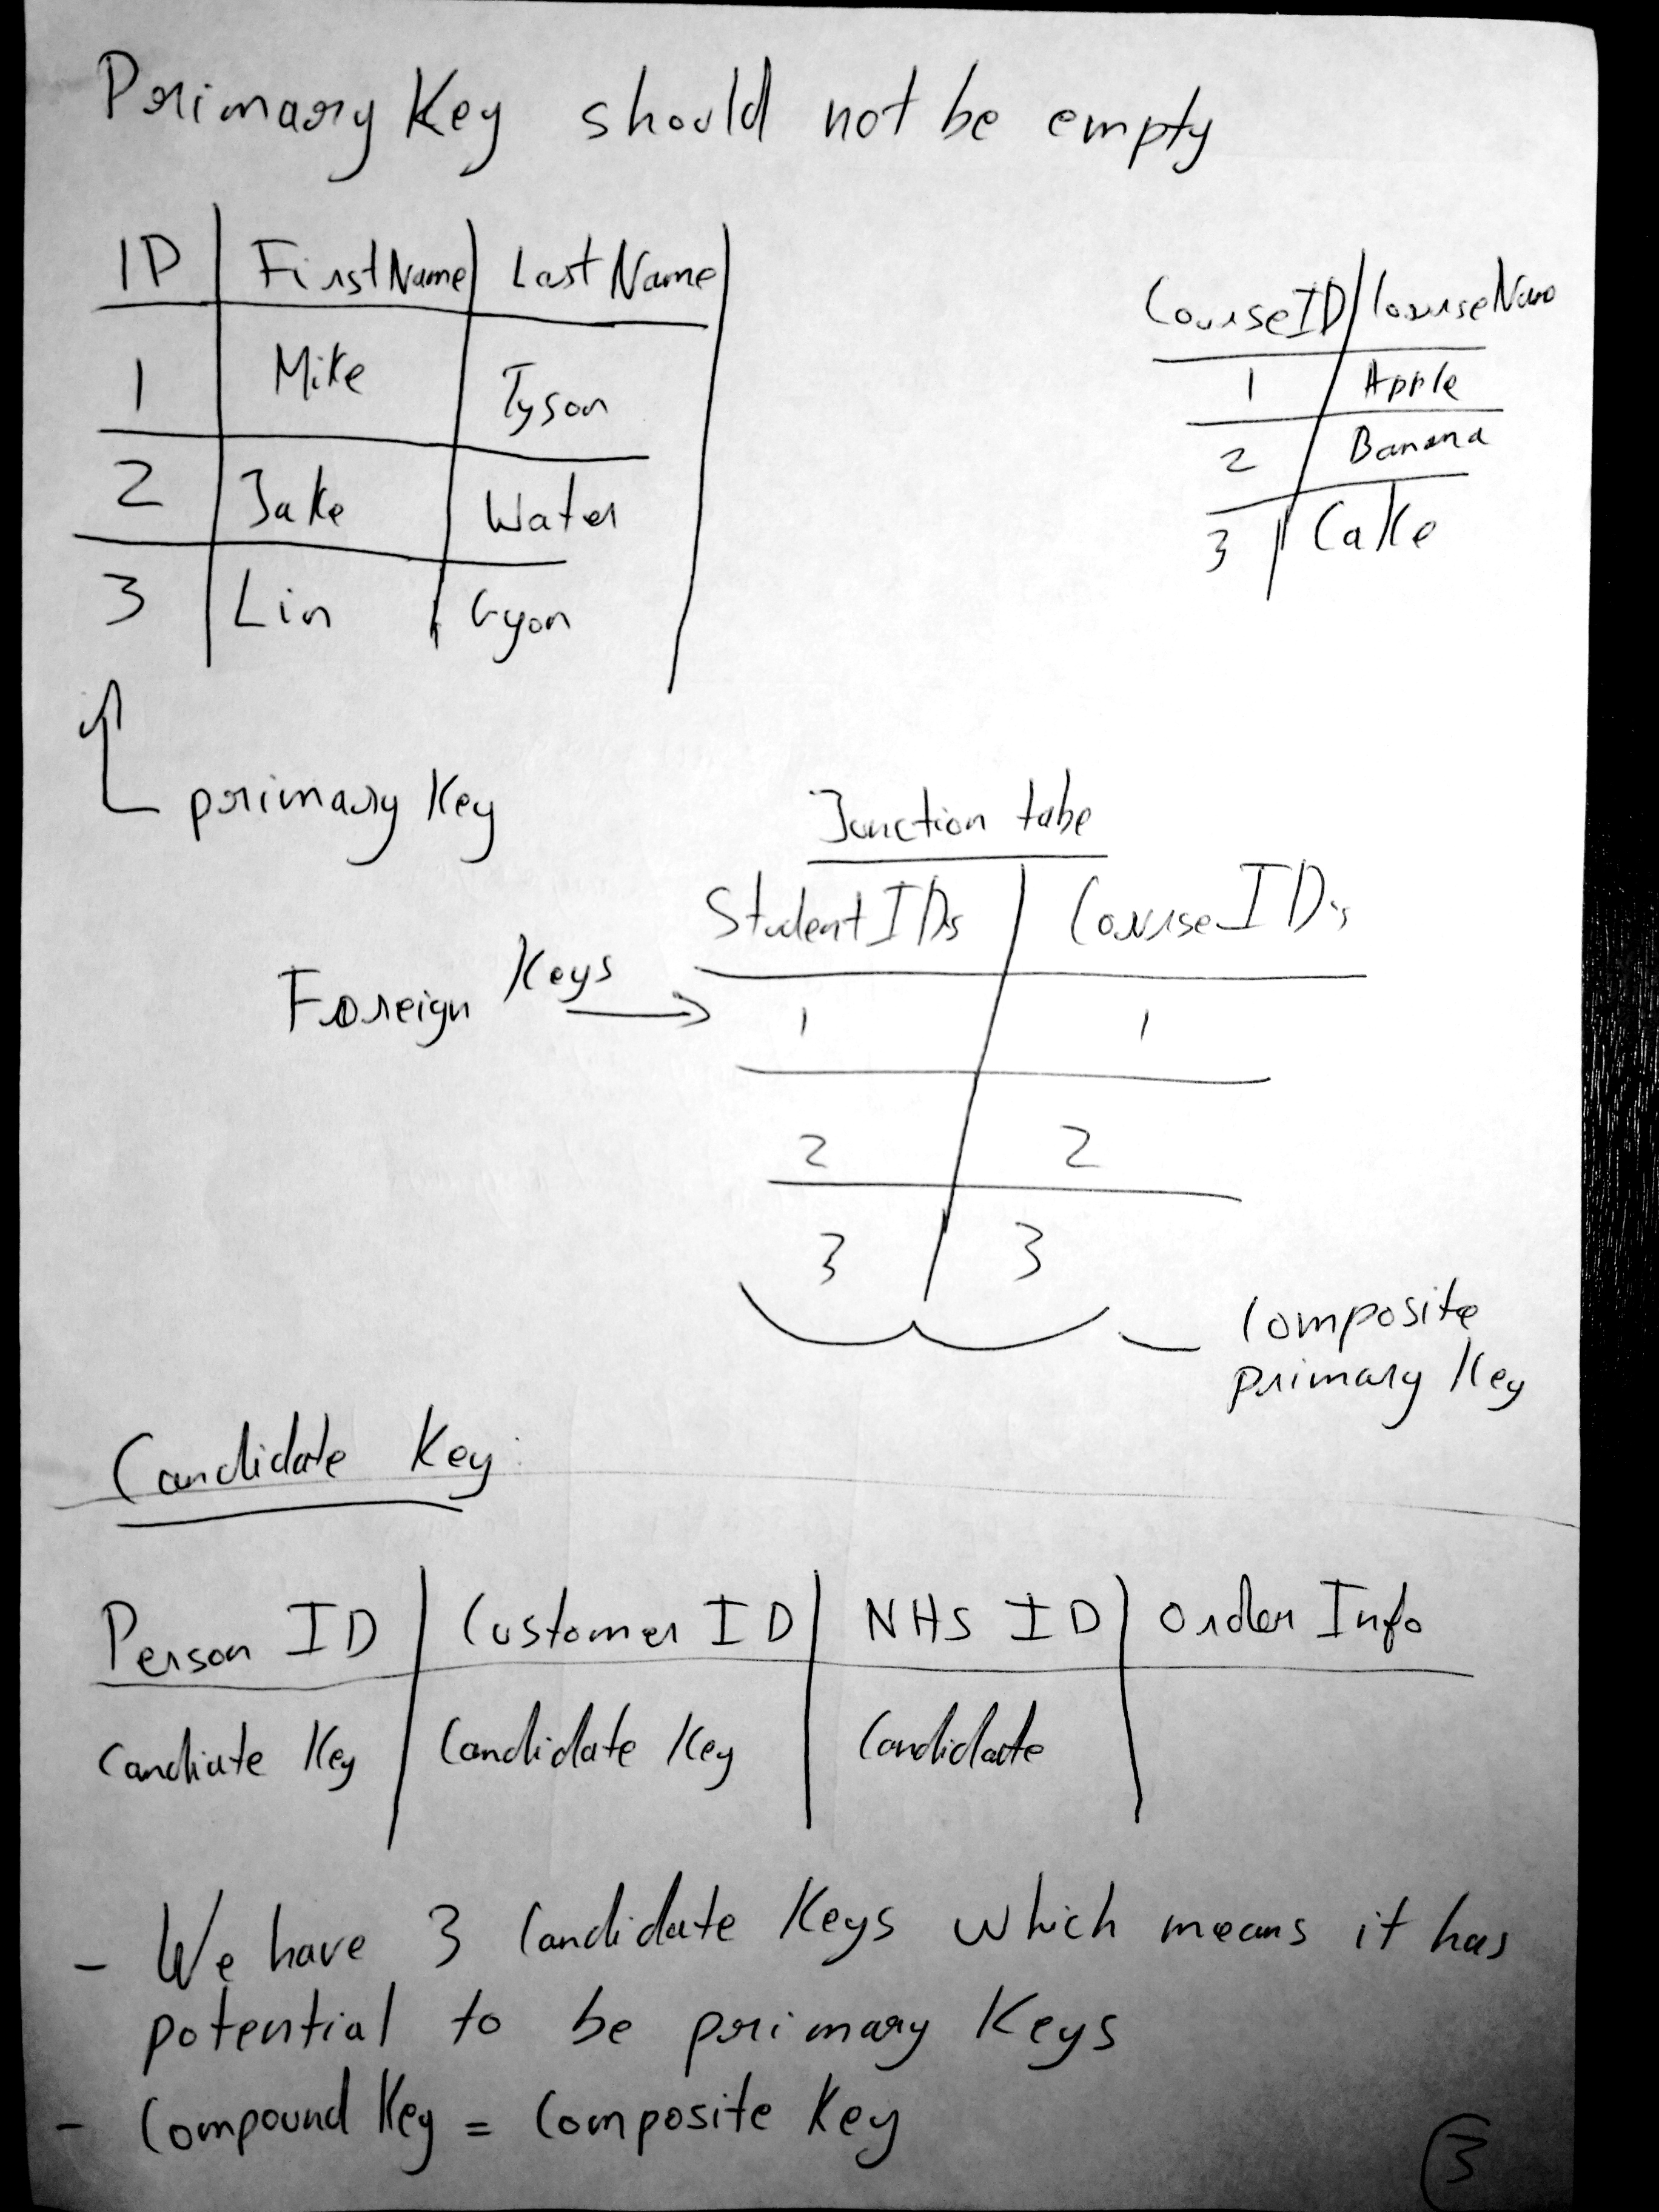 Primary Key should not be empty
ID FirstName Last Name
1 Mike Tyson
2 Jake Water
3 Lin Gyon
primary Key
CourseID CourseName
1 Apple
2 Banana
3 Cake
Junction tabe
StudentIDs CourseIDs
Foreign Keys
1 1
2 2
3 3
Composite
primary Key
Candidate Key:
Person ID Customer ID NHS ID Order Info
Candiate Key Candidate Key Candidate
- We have 3 Candidate Keys which means it has
potential to be primary Keys
- Compound Key = Composite Key
3